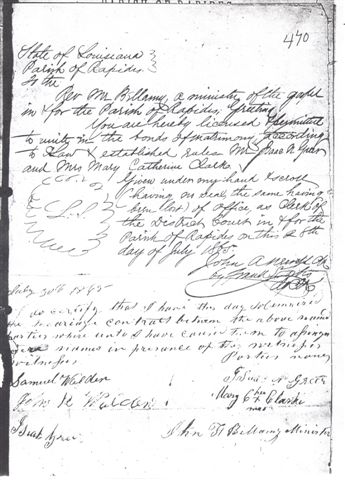 470
State of Louisiana
Parish of Rapides
To the
Rev M. Bellamy, a ministry of the gospel
in & for the Parish of Rapides, Greeting
You are hereby licensed & permitted
to unity in the bonds of matrimony according
to Law & established Rules Mr Isaac
and Mrs Mary Catherine Clarke
Given under my hand & scroll
having no seal the same having
L.S.
been lost) of office as Clerk of
the District Court in & for the
Parish of Rapides on this 28th
day of July
John A
by Frank
July 30th 1865
I do certify that I have this day solemnized
the marriage contract between the above named
parties who unto I have caused them to
names in presence of the witnesses
Witnesses
Parties names
Samuel Walden
Isaac
John R Walden
Mary C her X Clarke
mark
Isaac
John F Bellamy Minister